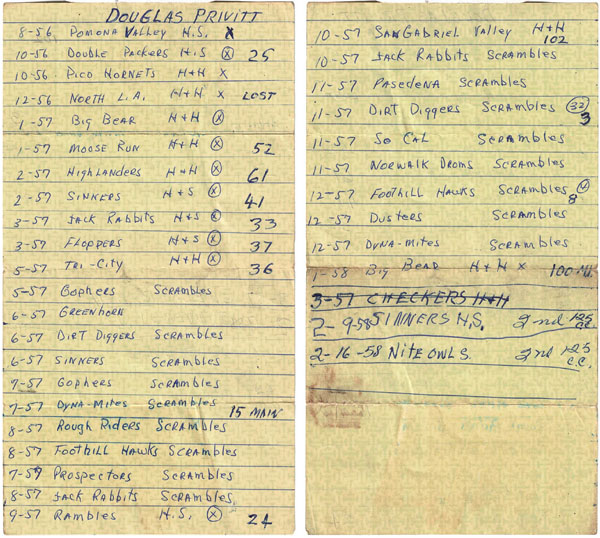 DOUGLAS PRIVITT
8-56 POMONA VALLEY H.S. X
10-56 DOUBLE PACKERS H.S X 25
10-56 PICO HORNETS H+H X
12-56 NORTH L.A. H+H X LOST
1-57 BIG BEAR H+H X
1-57 MOOSE RUN H+H X 52
2-57 HIGHLANDERS H+H X 61
2-57 SINNERS H+S X 41
3-57 JACK RABBITS H+S X 33
3-57 FLOPPERS H+S X 37
5-57 TRI-CITY H+H X 36
5-57 GOPHERS SCRAMBLES
6-57 GREENHORN
6-57 DIRT DIGGERS SCRAMBLES
6-57 SINKERS SCRAMBLES
7-57 GOPHERS SCRAMBLES
7-57 DYNA-MITES SCRAMBLES 15 MAIN
8-57 ROUGH RIDERS SCRAMBLES
8-57 FOOTHILL HAWKS SCRAMBLES
7-57 PROSPECTORS SCRAMBLES
8-57 JACK RABBITS SCRAMBLES
9-57 RAMBLES H.S. X 24
10-57 SAN GABRIEL VALLEY H+H 102
10-57 JACK RABBITS SCRAMBLES
11-57 PASEDENA SCRAMBLES
11-57 DIRT DIGGERS SCRAMBLES 32 3
11-57 SO CAL SCRAMBLES
11-57 NORWALK DROMS SCRAMBLES
12-57 FOOTHILL HAWKS SCRAMBLES 8
12-57 DUSTERS SCRAMBLES
12-57 DYNA-MITES SCRAMBLES
1-58 BIG BEAR H+H X 100 MI.
3-57 CHECKERS H+H
2-9-58 SINNERS H.S. 2nd 125 C.C.
2-16-58 NITE OWLS. 2nd 125 C.C.